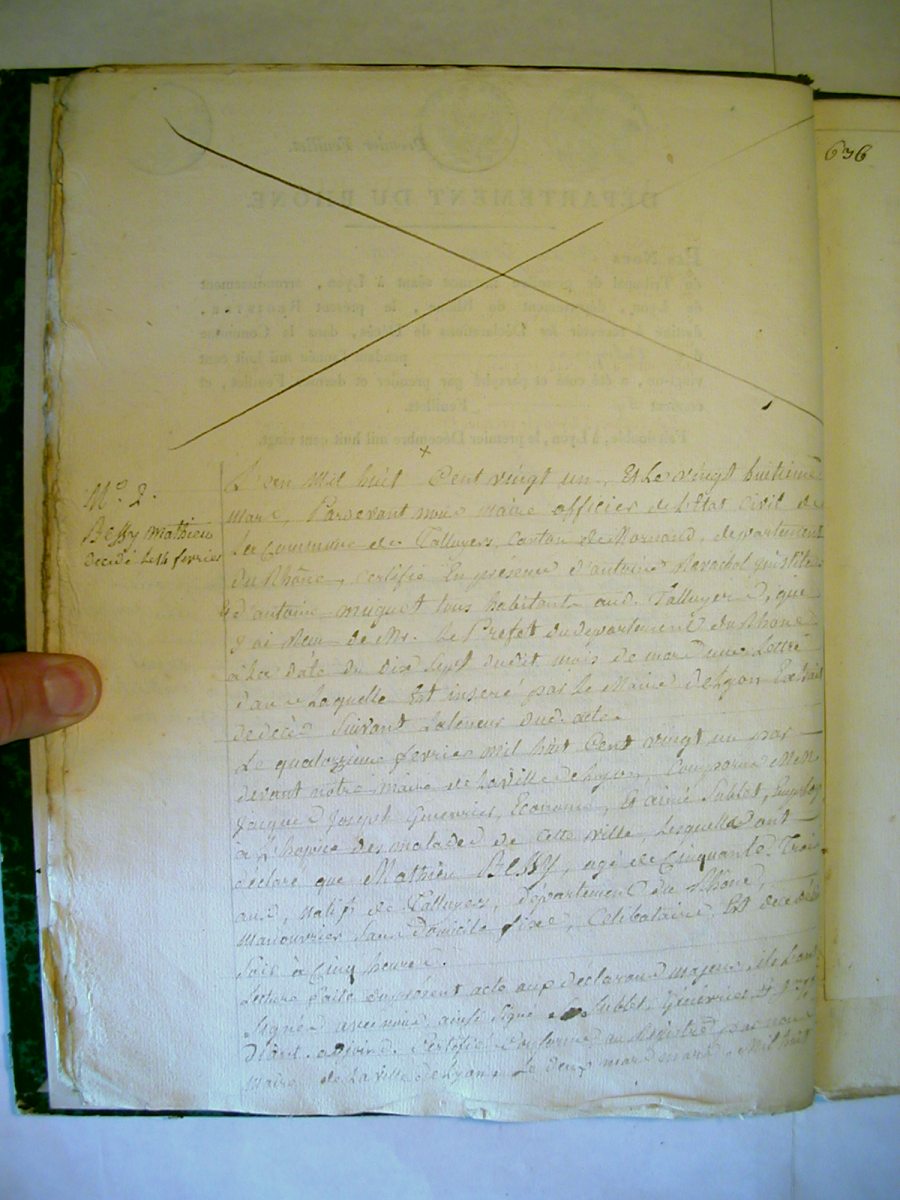 636
N.º 2.
Bessy Mathieu
décédé le 14 fevrier
L'an Mil huit Cent vingt un, Et Le vingt huitieme
mars, Pardevant nous maire officier de L'Etat Civil de
La Commune de Talluyers, Canton de Mornand, departement
du Rhône, Certifie En presence d'antoine Revachol
& d'antoine muguet tous habitants aud. Talluyers, que
j'ai Reçu de Mr. Le Prefet du département du Rhône
à La date du dix Sept dudit mois de mars une Lettre
dans Laquelle Est inseré par Le Maire de Lyon Extrait
de décès Suivant La teneur dud. acte.
Le quatorzieme fevrier mil huit Cent vingt un par
devant nous maire de La ville de Lyon, Comparus MM.
Jacques Joseph Genevrier, Econome, Et aimé Sublet, Employé
à L'hospice des malades de Cette ville, Lesquelles ont
déclaré que Mathieu Bessy, agé de Cinquante Trois
ans, Natif de Talluyers, département du Rhône,
Manouvrier Sans Domicile fixe, Celibataire, Est décédé
Soir à Cinq heures.
Lecture faite du present acte aux déclarans majeurs, ils L'ont
Signé avec nous, ainsi Signé Sublet, Genevrier, Et
adjoint. Certifié Conforme au Régistre par nous
Maire de La ville de Lyon Le deux mars Mil huit